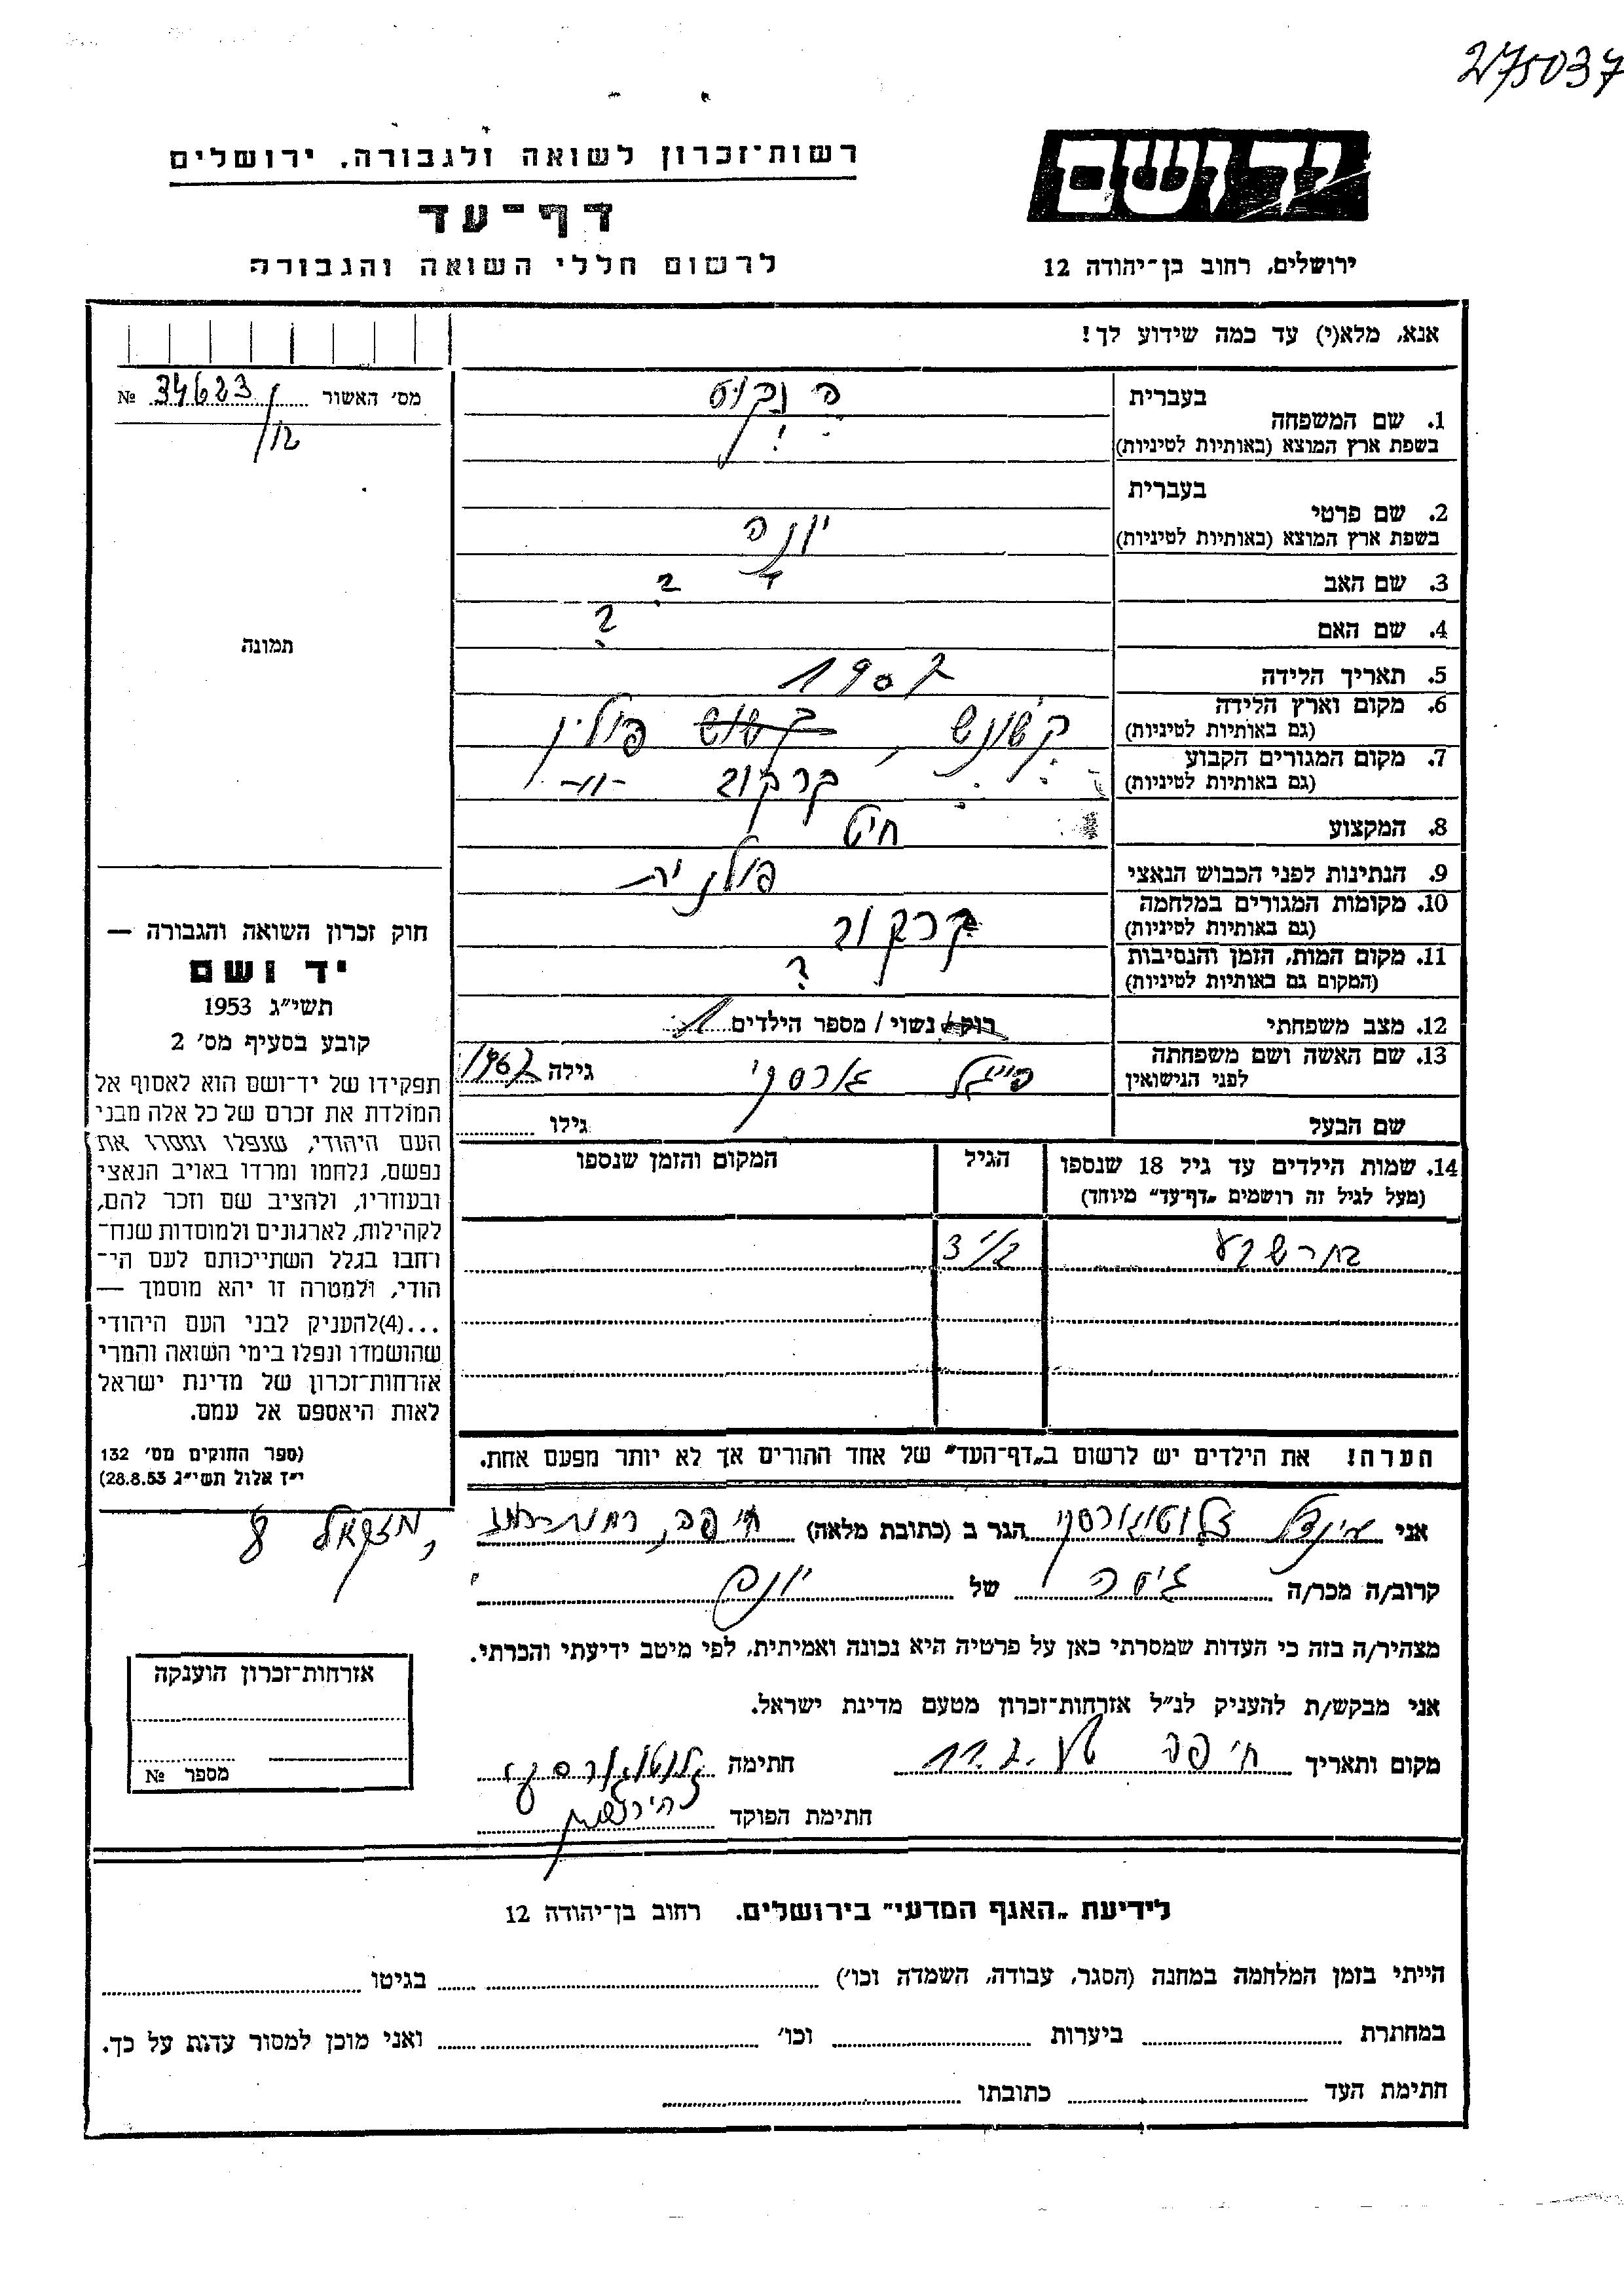 275037
רשות־זכרון לשואה ולגבורה. ירושלים
יד ושם
דף־עד
לרשום חללי השואה והגבורה
ירושלים, רחוב בן־יהודה 12
אנא, מלא(י) עד כמה שידוע לך!
מס׳ האשור 34623 №
12/
בעברית
1. שם המשפחה
בשפת ארץ המוצא (באותיות לטיניות)
בעברית
2. שם פרטי
בשפת ארץ המוצא (באותיות לטיניות)
יונה
3. שם האב ?
4. שם האם ?
תמונה
5. תאריך הלידה 1907
6. מקום וארץ הלידה פולין
(גם באותיות לטיניות)
7. מקום המגורים הקבוע קרקוב -"-
(גם באותיות לטיניות)
8. המקצוע חיט
9. הנתינות לפני הכבוש הנאצי פולנית
10. מקומות המגורים במלחמה קרקוב
(גם באותיות לטיניות)
11. מקום המות, הזמן והנסיבות ?
(המקום גם באותיות לטיניות)
12. מצב משפחתי רוק/ נשוי / מספר הילדים 1
13. שם האשה ושם משפחתה פייגל גילה 1907
לפני הנישואין
שם הבעל גילו
14. שמות הילדים עד גיל 18 שנספו הגיל המקום והזמן שנספו
(מעל לגיל זה רושמים „דף־עד״ מיוחד)
בת שבע 3 1/2
הערה! את הילדים יש לרשום ב„דף־העד״ של אחד ההורים אך לא יותר מפעם אחת.
חוק זכרון השואה והגבורה —
יד ושם
תשי״ג 1953
קובע בסעיף מס׳ 2
תפקידו של יד־ושם הוא לאסוף אל
המולדת את זכרם של כל אלה מבני
העם היהודי, שנפלו ומסרו את
נפשם, נלחמו ומרדו באויב הנאצי
ובעוזריו, ולהציב שם וזכר להם,
לקהילות, לארגונים ולמוסדות שנח־
רחבו בגלל השתייכותם לעם הי־
הודי, ולמטרה זו יהא מוסמך —
...(4)להעניק לבני העם היהודי
שהושמדו ונפלו בימי השואה והמרי
אזרחות־זכרון של מדינת ישראל
לאות היאספם אל עמם.
(ספר החוקים מס׳ 132
י״ז אלול תשי״ג 28.8.53)
אני הגר ב (כתובת מלאה) חיפה, יחזקאל 8
קרוב/ה מכר/ה גיסה של יונה
מצהיר/ה בזה כי העדות שמסרתי כאן על פרטיה היא נכונה ואמיתית, לפי מיטב ידיעתי והכרתי.
אני מבקש/ת להעניק לנ״ל אזרחות־זכרון מטעם מדינת ישראל.
מקום ותאריך חיפה חתימה
חתימת הפוקד
אזרחות־זכרון הוענקה
מספר №
לידיעת „האגף המדעי״ בירושלים. רחוב בן־יהודה 12
הייתי בזמן המלחמה במחנה (הסגר, עבודה, השמדה וכו׳) בגיטו
במחתרת ביערות וכו׳ ואני מוכן למסור עדות על כך.
חתימת העד כתובתו